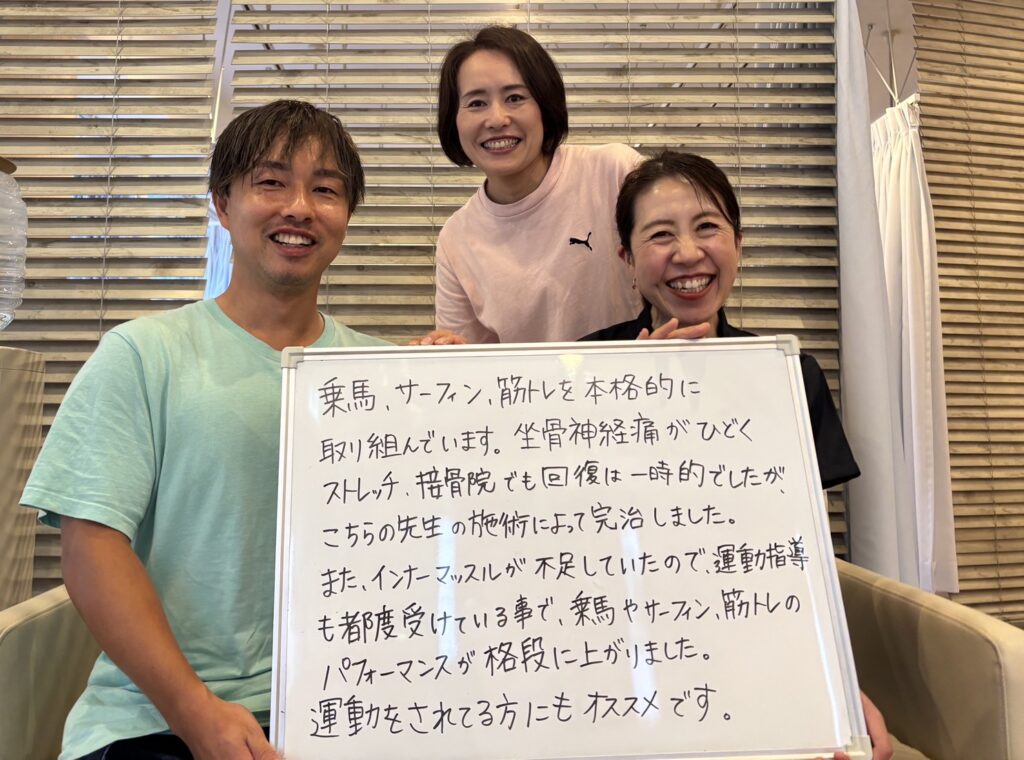 乗馬、サーフィン、筋トレを本格的に
取り組んでいます。坐骨神経痛がひどく
ストレッチ、接骨院でも回復は一時的でしたが、
こちらの先生の施術によって完治しました。
また、インナーマッスルが不足していたので、運動指導
も都度受けている事で、乗馬やサーフィン、筋トレの
パフォーマンスが格段に上がりました。
運動をされてる方にもオススメです。